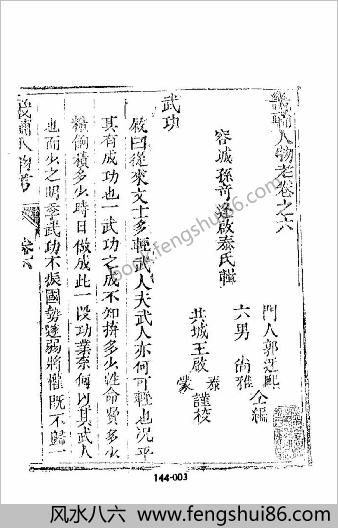 畿輔人物考卷之六
容城孫奇逢啟泰氏輯
門人郭
六男尚雅
仝編
共城王啟
泰
蒙
謹校
武功
啟曰從來文士多輕武人夫武人亦何可輕也况乎
其有成功也一武功之成不知拚多少性命費多少
糧餉積多少時日做成此一段功業奈何以其武人
也而少之明季武功不振國勢遂弱將權既不歸一
畿輔人物考
卷六
144-003
book.fengshui86.com
风水八六 www.fengshui86.com